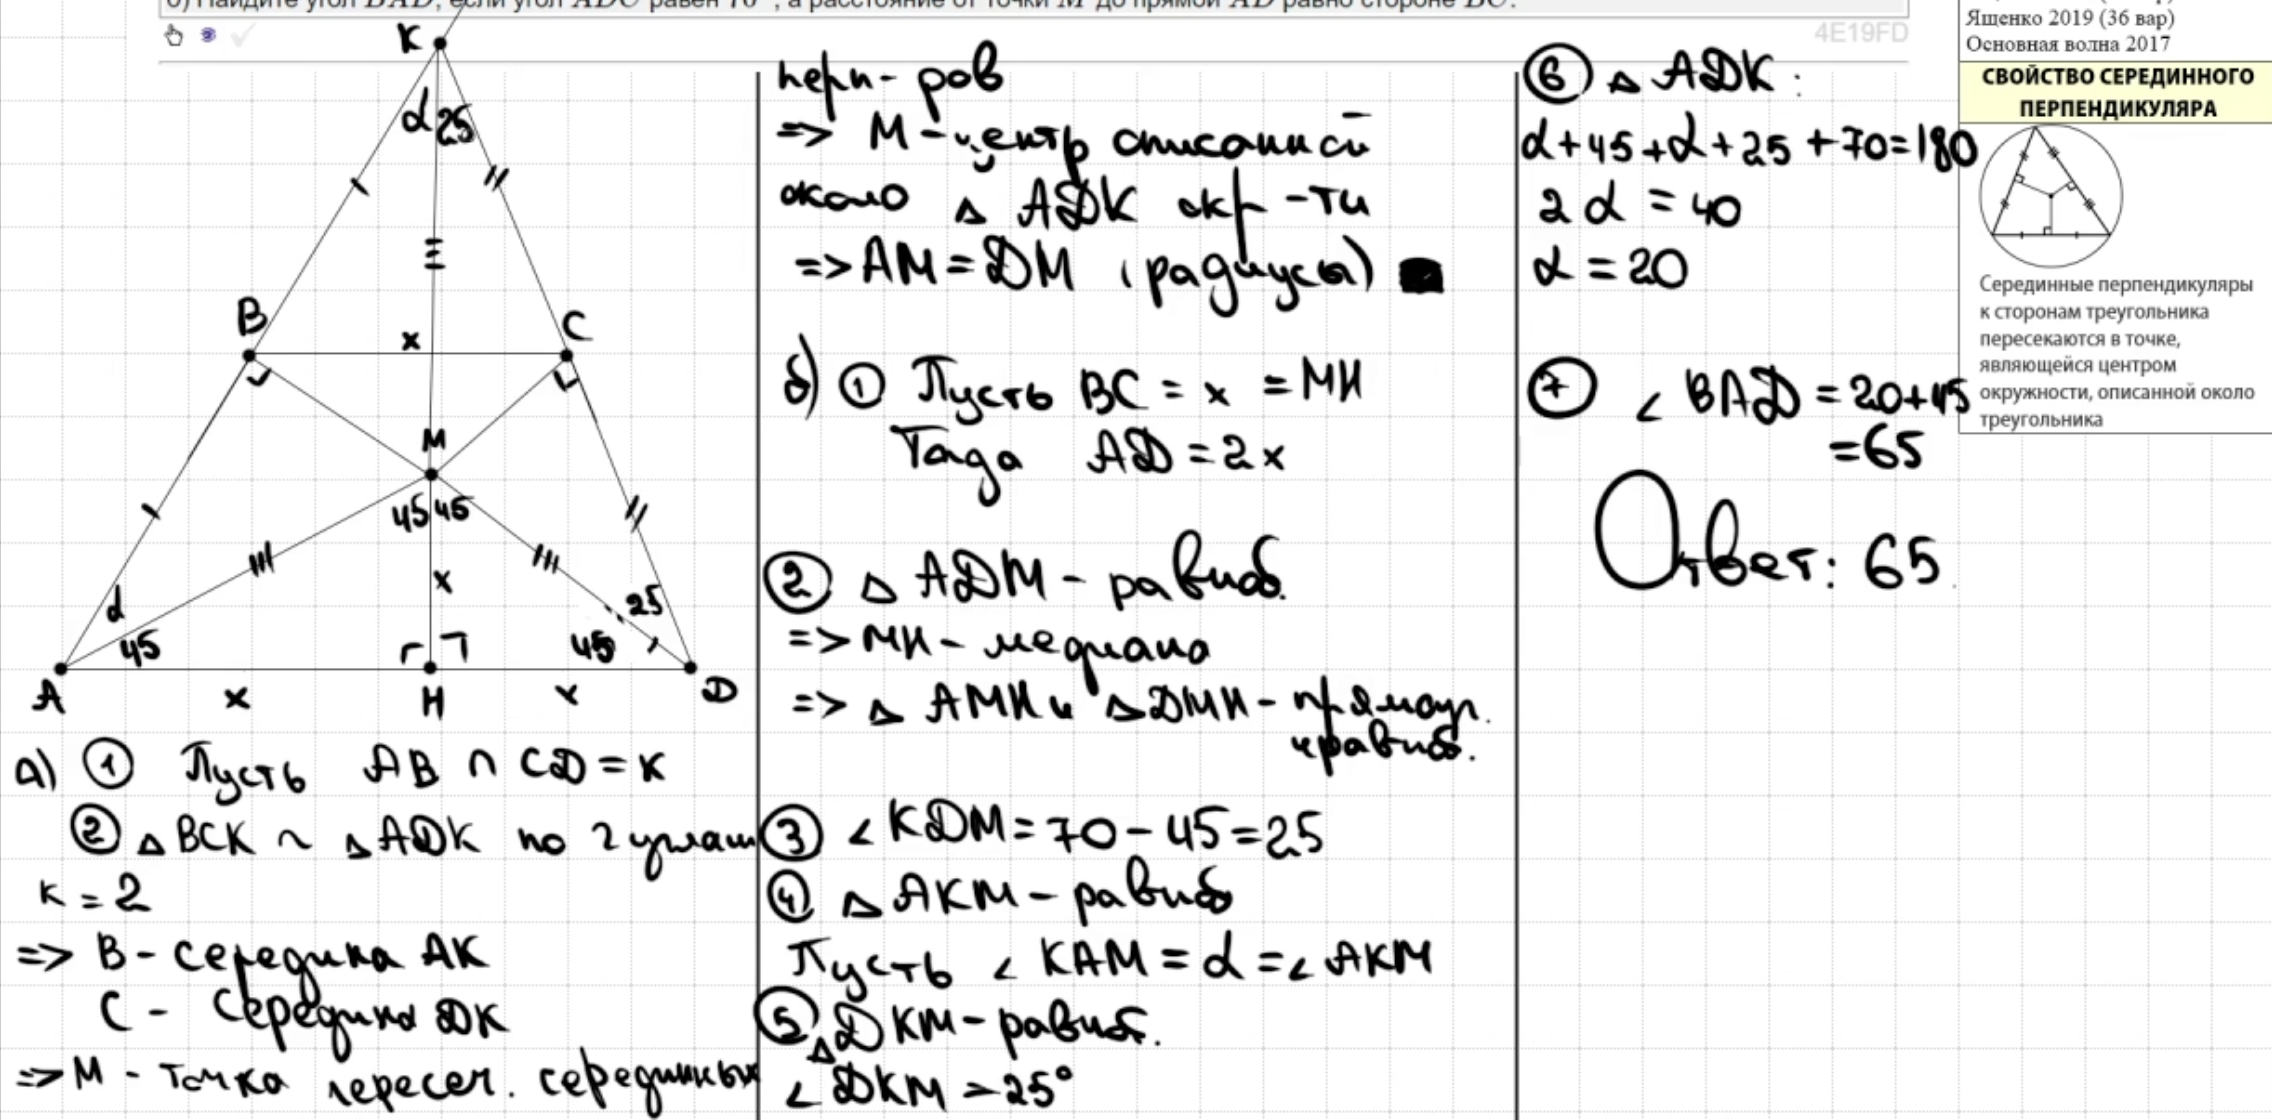 б) Найдите угол BAD, если угол ADC равен 70°, а расстояние от точки M до прямой AD равно стороне BC.
4E19FD
Ященко 2019 (36 вар)
Основная волна 2017
СВОЙСТВО СЕРЕДИННОГО
ПЕРПЕНДИКУЛЯРА
Серединные перпендикуляры
к сторонам треугольника
пересекаются в точке,
являющейся центром
окружности, описанной около
треугольника
K
α 25
B
x
C
M
45 45
x
α
45
25
45
A
x
H
x
D
а) ① Пусть AB ∩ CD = K
② △ BCK ~ △ ADK по 2 углам
k = 2
=> B - середина AK
C - середина DK
=> M - точка пересеч. серединных
перп-ров
=> M - центр описанной
около △ ADK окр-ти
=> AM = DM (радиусы)
б) ① Пусть BC = x = MH
Тогда AD = 2x
② △ ADM - равноб.
=> MH - медиана
=> △ AMH и △ DMH - прямоуг.
и равноб.
③ ∠ KDM = 70 - 45 = 25
④ △ AKM - равноб
Пусть ∠ KAM = α = ∠ AKM
⑤ △ DKM - равноб.
∠ DKM = 25°
⑥ △ ADK:
α + 45 + α + 25 + 70 = 180
2α = 40
α = 20
⑦ ∠ BAD = 20 + 45
= 65
Ответ: 65